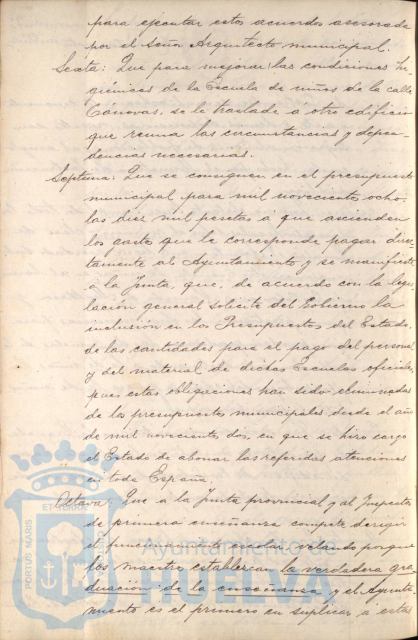 para ejecutar estos acuerdos asesorada
por el Señor Arquitecto municipal.
Sexta: Que para mejorar las condiciones hi
giénicas de la Escuela de niños de la calle
Cánovas, se le traslade á otro edificio
que reuna las circunstancias y depen
dencias necesarias.
Septima: Que se consignen en el presupuesto
municipal para mil novecientos ocho,
las diez mil pesetas á que ascienden
los gastos que le corresponde pagar direc
tamente al Ayuntamiento y se manifieste
á la Junta, que, de acuerdo con la legis
lación general solicite del Gobierno la
inclusión en los Presupuestos del Estado
de las cantidades para el pago del personal
y del material de dichas Escuelas oficiales,
pues estas obligaciones han sido eliminadas
de los presupuestos municipales desde el año
de mil novecientos dos, en que se hizo cargo
el Estado de abonar las referidas atenciones
en toda España.
Octava: Que á la Junta provincial y al Inspector
de primera enseñanza compete dirigir
el funcionamiento escolar velando porque
los maestros establezcan la verdadera gra
duación de la enseñanza y el Ayunta
miento es el primero en suplicar á estas
PORTUS MARIS
Ayuntamiento de
HUELVA